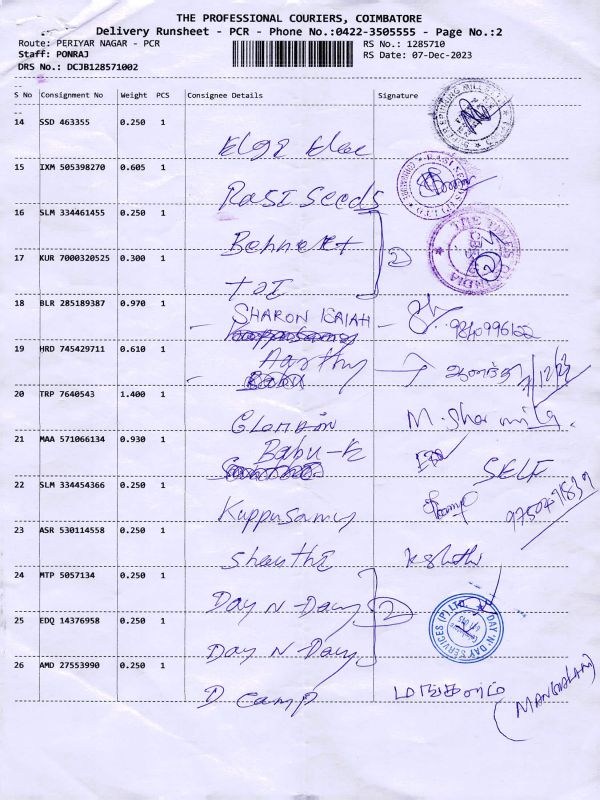 THE PROFESSIONAL COURIERS, COIMBATORE
Delivery Runsheet - PCR - Phone No.:0422-3505555 - Page No.:2
Route: PERIYAR NAGAR - PCR
RS No.: 1285710
Staff: PONRAJ
RS Date: 07-Dec-2023
DRS No.: DCJB128571002
S No Consignment No Weight PCS Consignee Details Signature
14 SSD 463355 0.250 1
15 IXM 505398270 0.605 1 RASI Seeds
16 SLM 334461455 0.250 1 Bennett
17 KUR 7000320525 0.300 1 TOI 2
18 BLR 285189387 0.970 1 SHARON ISAIAH
19 HRD 745429711 0.610 1 Aarthy 7/12/23
20 TRP 7640543 1.400 1 M. Sharmila.
21 MAA 571066134 0.930 1 Babu-K SELF
22 SLM 334454366 0.250 1 Kuppusamy
23 ASR 530114558 0.250 1
24 MTP 5057134 0.250 1 Day N Day
25 EDQ 14376958 0.250 1 Day N Day 2
DAY 'N' DAY SERVICES (P) LTD.
26 AMD 27553990 0.250 1 D Camp